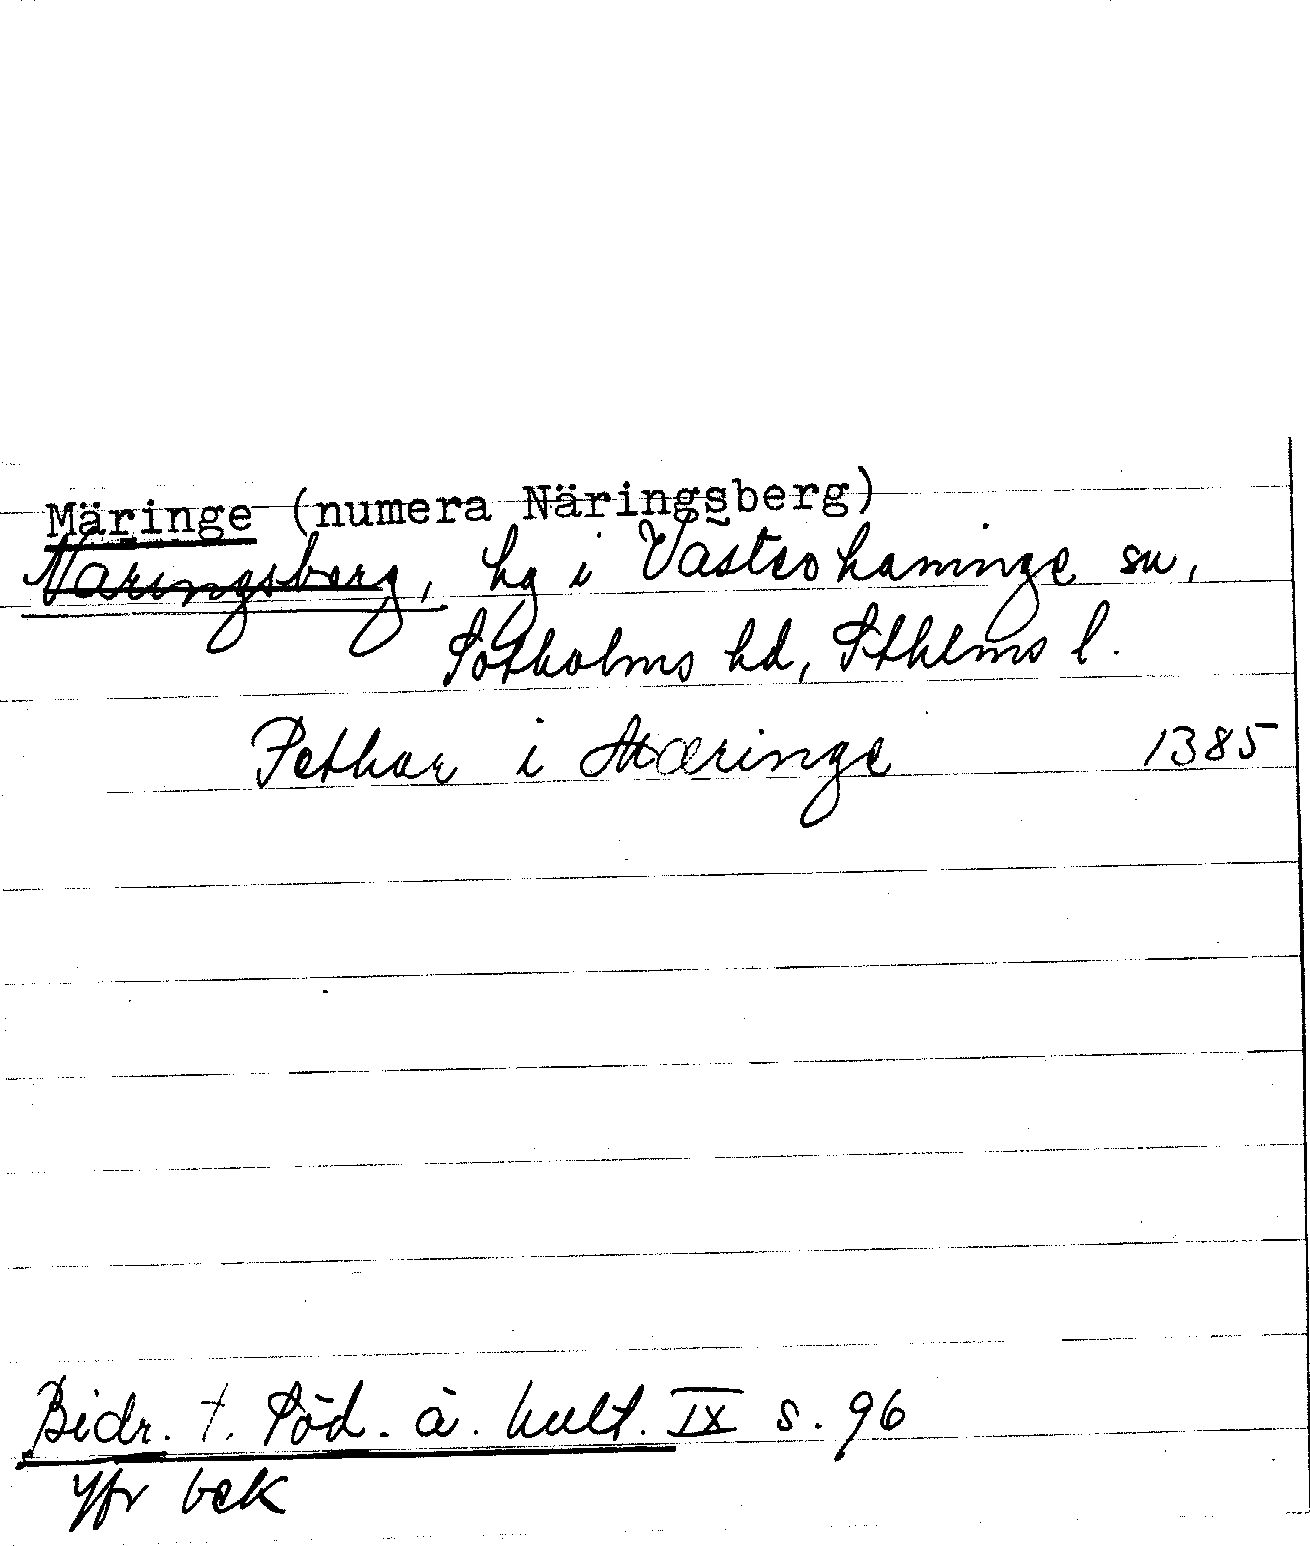 Märinge (numera Näringsberg)
Näringsberg, hg i Västerhaninge sn,
Sotholms hd, Sthlms l.
Pethar i Mæringe 1385
Bidr. t. Söd. ä. kult. IX s. 96
Yfr bek